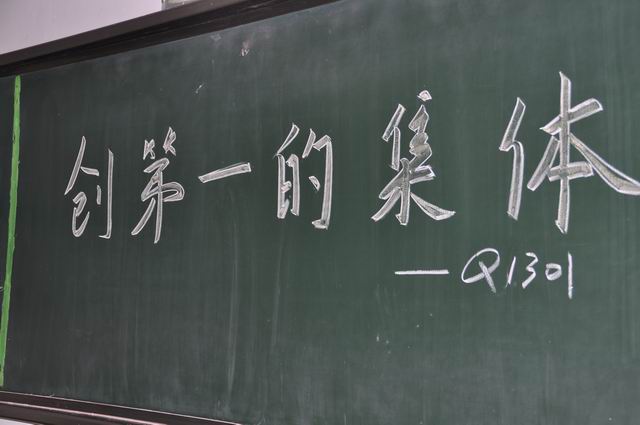 创第一的集体
—Q1301